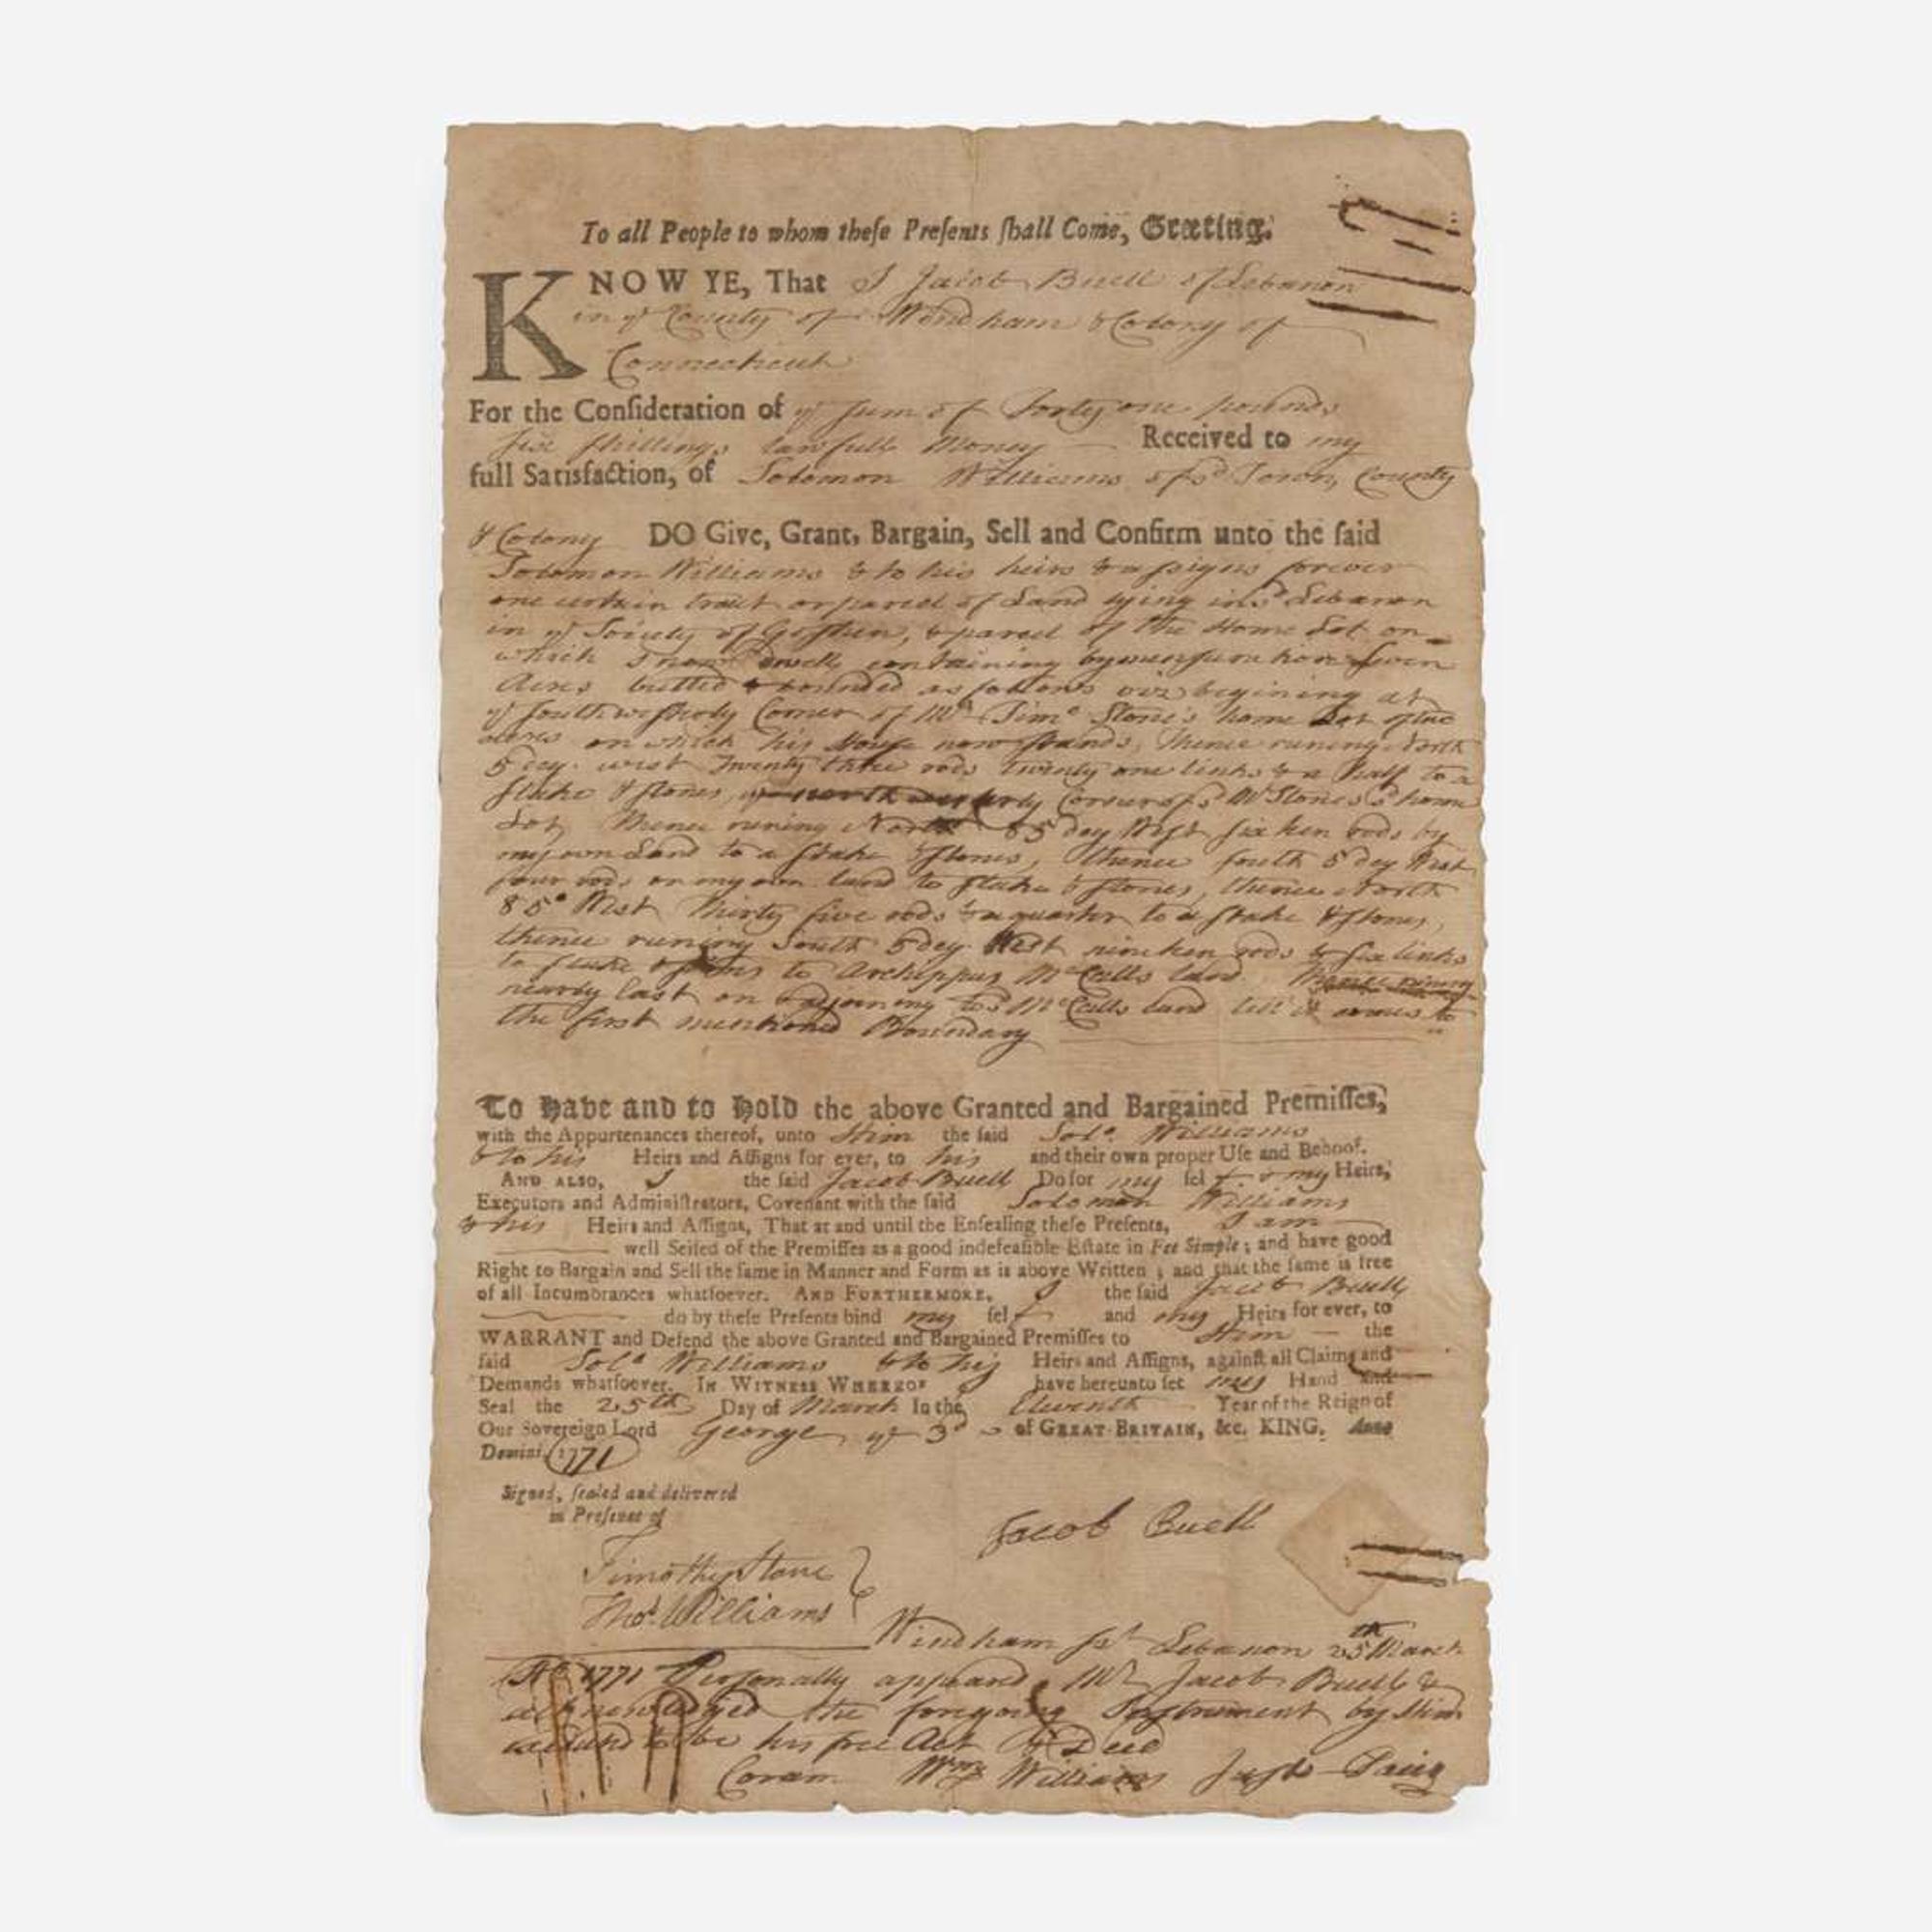 To all People to whom theſe Preſents ſhall Come, Greeting.
KNOW YE, That I Jacob Buell of Lebanon
in yͤ County of Windham & Colony of
Connecticut
For the Conſideration of yͤ Sum of Forty one pounds
ſix ſhillings lawfull Money Received to my
full Satisfaction, of Solomon Williams of sᵈ Town, County
& Colony DO Give, Grant, Bargain, Sell and Confirm unto the ſaid
Solomon Williams & to his heirs & aſsigns forever
one certain tract or parcel of Land lying in sᵈ Lebanon
in yͤ Society of Goſhen, & parcel of the Home Lot on
which I now dwell containing by menſuration Seven
Acres butted & bounded as follows viz begining at
yͤ Southweſterly Corner of Mʳ Timᵒ Stone's home Lot of
acres on which his Houſe now ſtands, thence runing North
5 deg. west Twenty three rods twenty one links & a half to a
ſtake & ſtones, Corner of sᵈ Mʳ Stones's home
Lot, thence runing North 85 deg Weſt ſixteen rods by
my own Land to a ſtake & ſtones, thence ſouth 5 deg West
four rods on my own land to ſtake & ſtones, thence North
85° West thirty five rods & a quarter to a ſtake & ſtones,
thence runing South 5 deg West nineteen rods & ſix links
to ſtake & ſtones to Archippus McCalls land thence runing
nearly East on & adjoining to sᵈ McCalls land till it comes to
the first mentioned Boundary
To Have and to Hold the above Granted and Bargained Premiſſes,
with the Appurtenances thereof, unto Him the ſaid Solᵒ Williams
& to his Heirs and Aſſigns for ever, to his and their own proper Uſe and Behoof.
AND ALSO, I the ſaid Jacob Buell Do for my ſelf & my Heirs,
Executors and Adminiſtrators, Covenant with the ſaid Solomon Williams
& his Heirs and Aſſigns, That at and until the Enſealing theſe Preſents, I am
well Seiſed of the Premiſſes as a good indefeaſible Eſtate in Fee Simple; and have good
Right to Bargain and Sell the ſame in Manner and Form as is above Written; and that the ſame is free
of all Incumbrances whatſoever. AND FURTHERMORE, I the ſaid Jacob Buell
do by theſe Preſents bind my ſelf and my Heirs for ever, to
WARRANT and Defend the above Granted and Bargained Premiſſes to Him the
ſaid Solᵒ Williams & to his Heirs and Aſſigns, againſt all Claims and
Demands whatſoever. IN WITNESS WHEREOF I have hereunto ſet my Hand and
Seal the 25th Day of March In the Eleventh Year of the Reign of
Our Sovereign Lord George yͤ 3ᵈ of GREAT-BRITAIN, &c. KING. Anno
Domini, 1771
Signed, ſealed and delivered
in Preſence of
Jacob Buell
Timothy Stone
Thoˢ Williams
Windham ſs Lebanon 25th March
1771 Perſonally appeared Mʳ Jacob Buell &
acknowledged the foregoing Inſtrument by Him
to be his free Act & Deed
Coram Wᵐ Williams Juſt Paciˢ